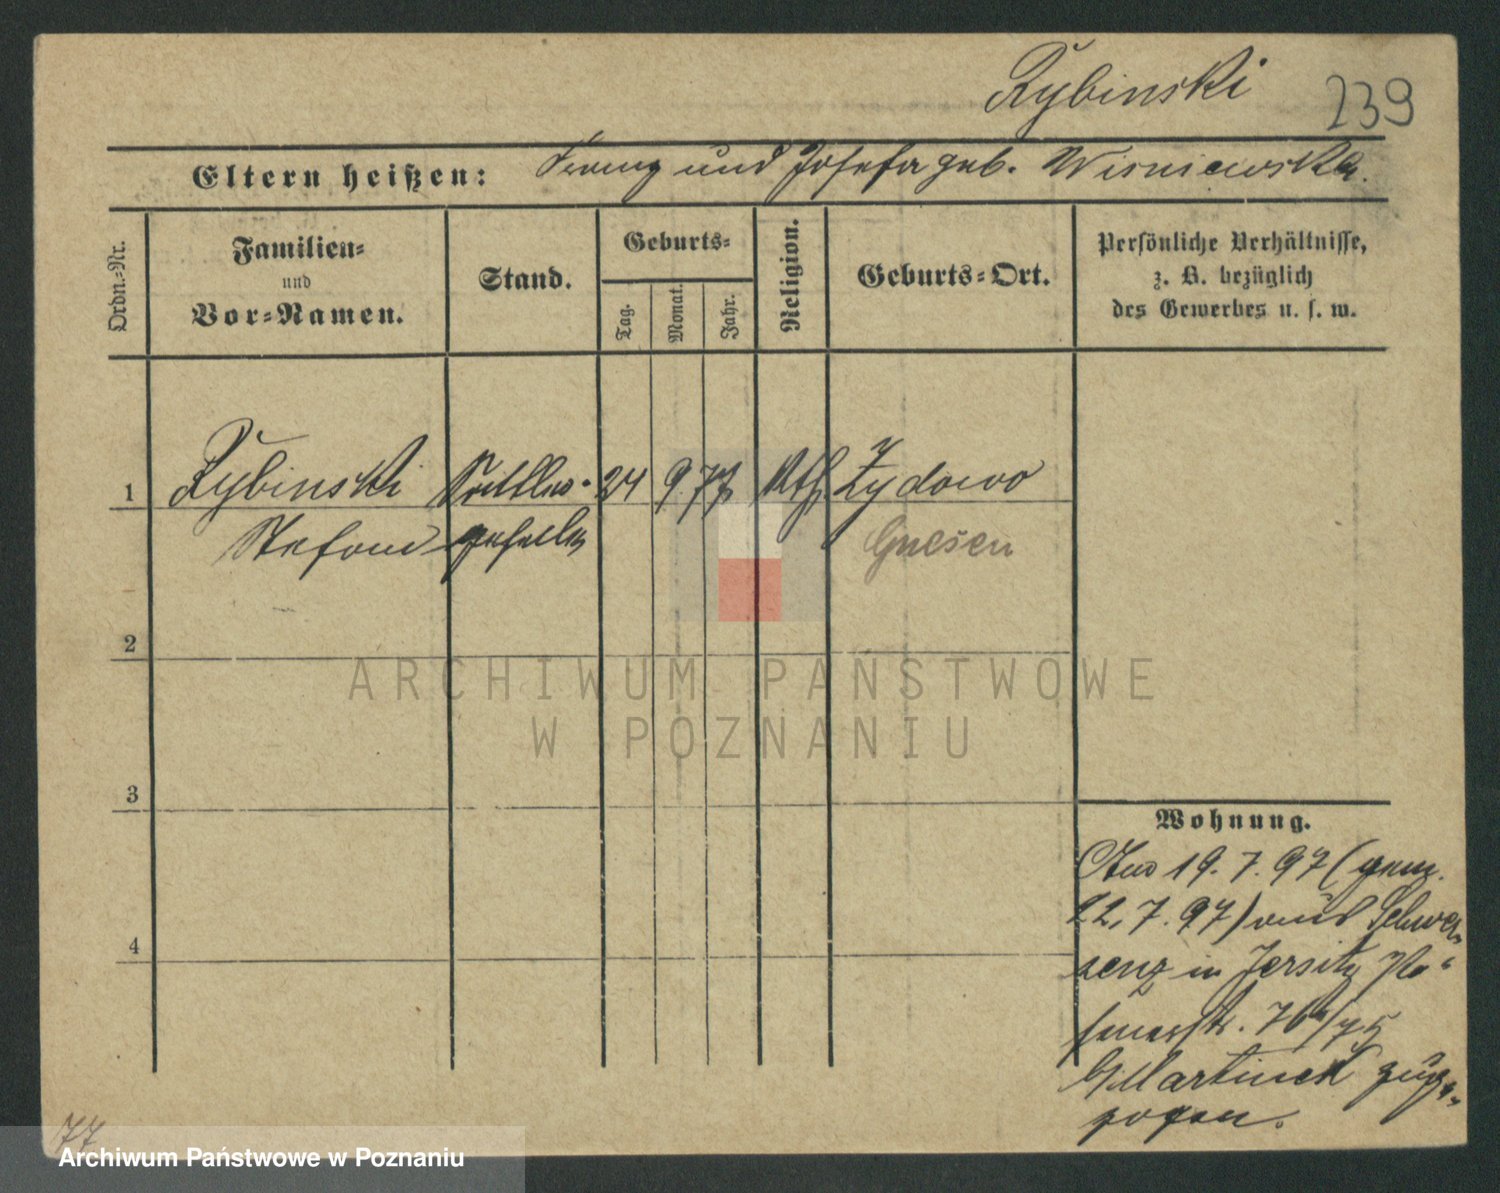 Rybinski 239
Eltern heißen: Franz und Josefa geb. Wisniewska.
Ordn.-Nr.
Familien-
und
Vor-Namen.
Stand.
Geburts-
Tag.
Monat.
Jahr.
Religion.
Geburts-Ort.
Persönliche Verhältnisse,
z. B. bezüglich
des Gewerbes u. s. w.
1 Rybinski Sattler- 24 9. 77 Kth Zydowo
Stefan geselle Gnesen
2
3
4
Wohnung.
Am 19. 7. 97 (gem.
22. 7. 97) aus Schwer-
senz in Jersitz Po-
senerstr. 76/75
b/ Martinek zuge-
zogen.
77
ARCHIWUM PAŃSTWOWE
W POZNANIU
Archiwum Państwowe w Poznaniu